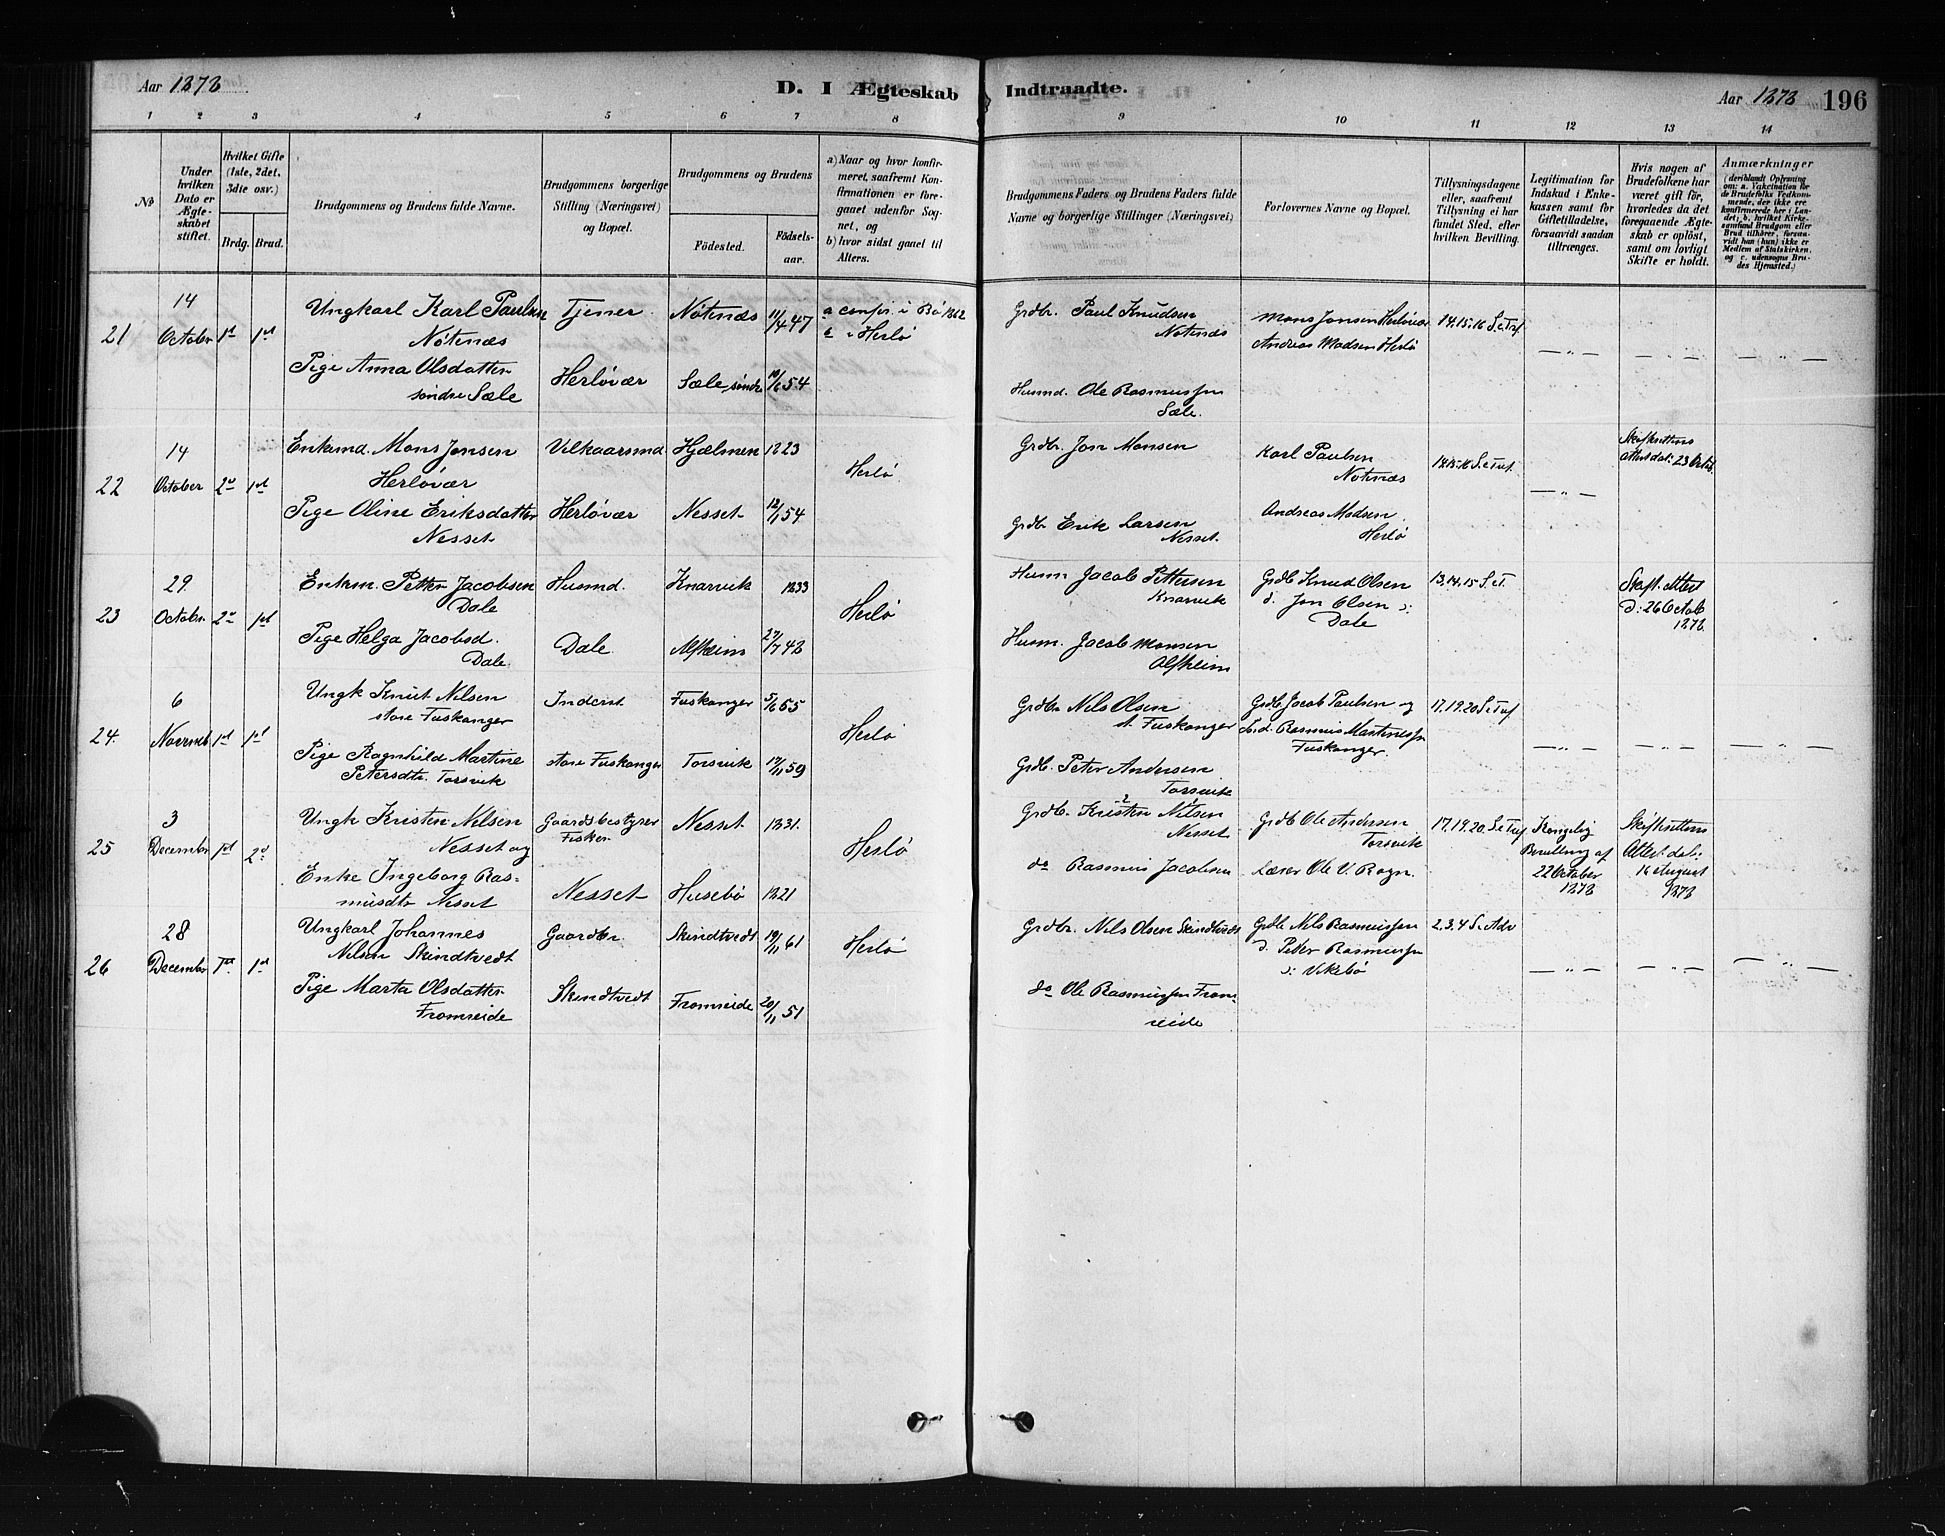 Aar 1878
D. I Ægteskab
Indtraadte.
Aar 1878
196
1 2 3 4 5 6 7 8 9 10 11 12 13 14
No
Under hvilken Dato er Ægteskabet stiftet.
Hvilket Gifte (1ste, 2det, 3die osv.)
Brdg. Brud.
Brudgommens og Brudens fulde Navne.
Brudgommens borgerlige Stilling (Næringsvei) og Bopæl.
Brudgommens og Brudens
Födested.
Födselsaar.
a) Naar og hvor konfirmeret, saafremt Konfirmationen er foregaaet udenfor Sognet, og
b) hvor sidst gaaet til Alters.
Brudgommens Faders og Brudens Faders fulde Navne og borgerlige Stillinger (Næringsvei)
Forlovernes Navne og Bopæl.
Tillysningsdagene eller, saafremt Tillysning ei har fundet Sted, efter hvilken Bevilling.
Legitimation for Indskud i Enkekassen samt for Giftetilladelse, forsaavidt saadan tiltrænges.
Hvis nogen af Brudefolkene har været gift før, hvorledes da det foregaaende Ægteskab er oplöst, samt om lovligt Skifte er holdt.
Anmærkninger
(deriblandt Oplysning om: a. Vakcination for de Brudefolks Vedkommende, der ikke ere konfirmerede her i Landet; b. hvilket Kirkesamfund Brudgom eller Brud tilhörer, forsaavidt han (hun) ikke er Medlem af Statskirken, og c. udensogns Brudes Hjemsted.)
21
14
October
1st
1st
Ungkarl Karl Paulsen
Nötenæs
Tjener
Nötnæs
11/4 47
a confir. i Bö 1862
b i Herlö
Grdbr. Paul Knudsen
Notenæs
Mons Jonsen Herlövær
Andreas Madsen Herlö
14. 15. 16 S. e. Tref
Pige Anna Olsdatter
söndre Sæle
Herlövær
Sæle söndre
Husmd. Ole Rasmussen
Sæle.
22
14
October
2d
1st
Enkemd. Mons Jonsen
Herlövær
Vilkaarsmd
Hjælmen
1823
Herlö
Grdbr. Jon Monsen
Karl Paulsen
Notenæs
Pige Oline Eriksdatter
Nesset
Herlövær
Nesset
12/1 54
Grdbr Erik Larsen
Nesset.
Andreas Madsen
Herlö
23
29
October
2d
1st
Enkem. Petter Jacobsen
Dale
Husmd.
Knarvik
1833
Herlö
Husm Jacob Pettersen
Knarvik
Grdb Knud Olsen
d. Jon Olsen
Dale
13. 14. 15 S. e. T.
Skift. Attest
d: 26 Octob
1878
Pige Helga Jacobsd.
Dale
Dale
Alfheim
27/7 48
Husm. Jacob Monsen
Alfheim
24.
6
Novemb
1st
1st
Ungk Knut Nilsen
store Fuskanger
Inderst
Fuskanger
5/6 55
Herlö
Grdbr Nils Olsen
st. Fuskanger
Grdb. Jacob Paulsen og
Rasmus Martinussen
Fuskanger
Pige Ragnhild Martine
Petersdtr. Torsvik
store Fuskanger
Torsvik
17/11 59
Grdb. Peter Andersen
Torsvik
25
3
December
1st
2d
Ungk Kristen Nilsen
Nesset og
Gaardsbestyrer
Fisker
Nesset
1831
Herlö
Grdbr. Kristen Nilsen
Nesset
Grdb Ole Andersen
Torsvik
17. 19. 20. S. e. Tref
Kongelig
Bevilling af
22 October
1878
Attest dat:
16 August
1878
Enke Ingeborg Ras-
musdtr Nesset
Nesset
Husebö
1821
do Rasmus Jacobsen
Lærer Ole V. Rogn.
26
28
December
1st
1st
Ungkarl Johannes
Nilsen Skindtvedt
Gaardbr
Skindtvedt
19/11 61
Herlö
Grdbr. Nils Olsen Skindtvedt
Grdb Nils Rasmussen
d. Peter Rasmussen
Vikebö
2. 3. 4 S. Adv
Pige Marta Olsdatter
Fromreide
Skindtvedt
Fromreide
20/11 51
do Ole Rasmussen From-
reide